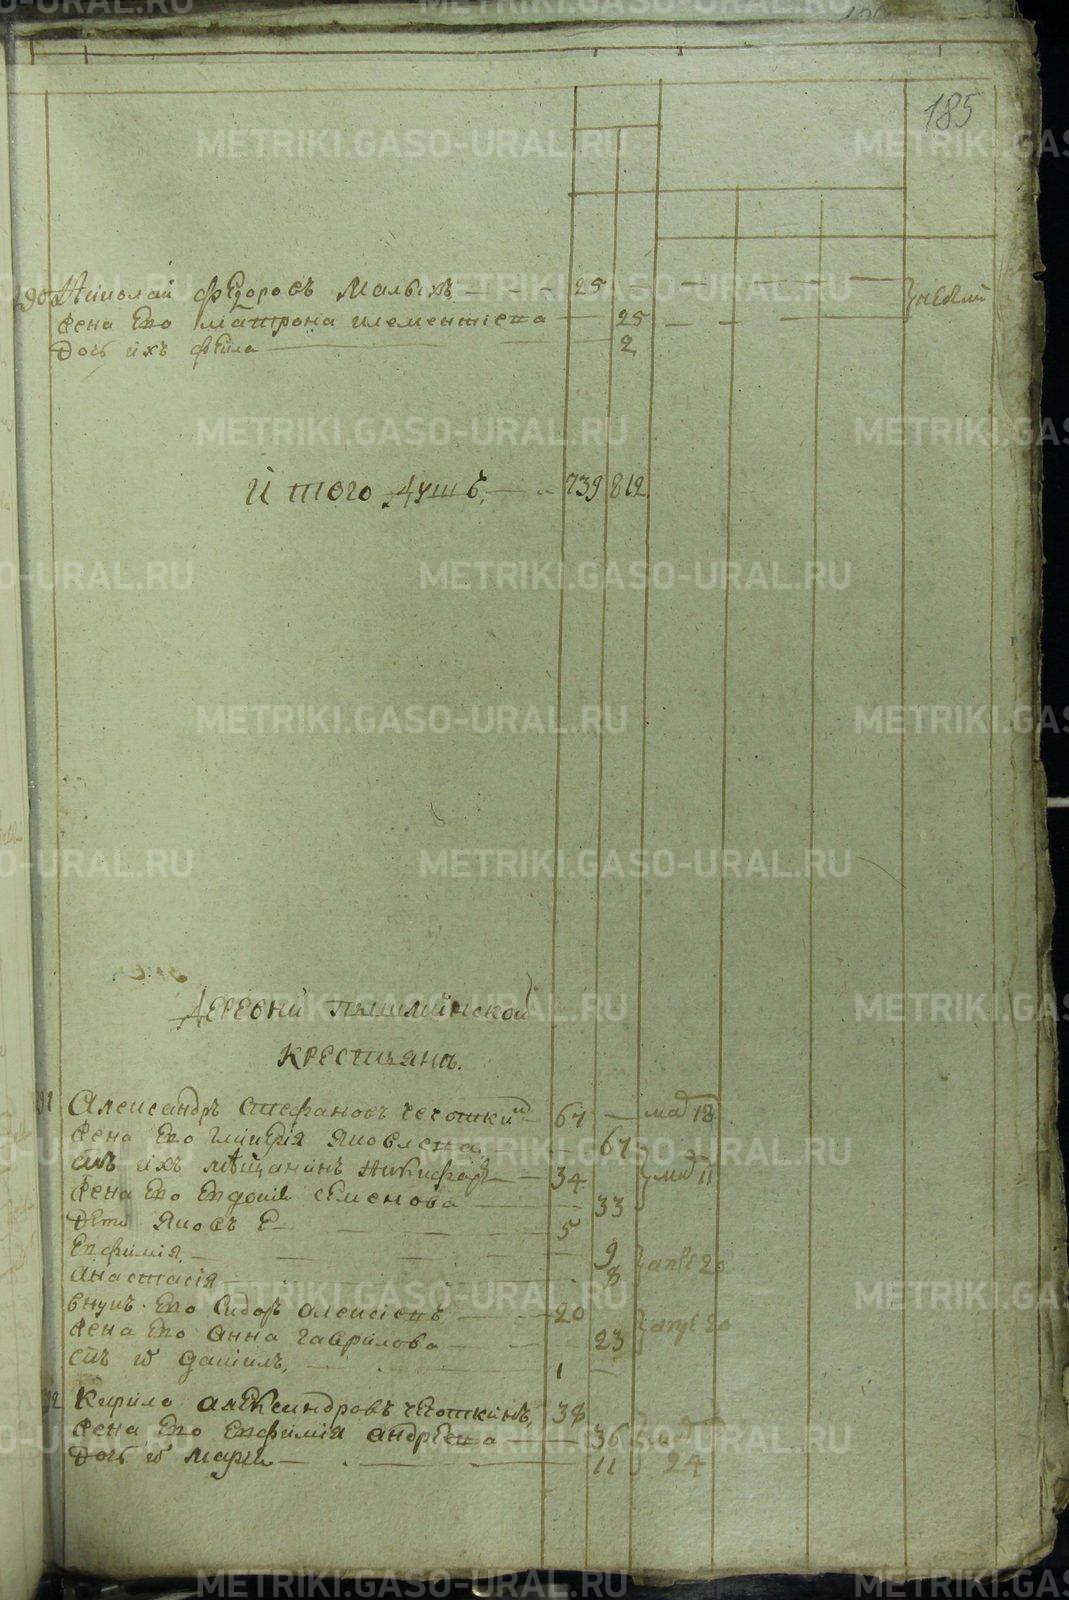 185
Николай Федоровъ Малыхъ 25
жена ево матрона клементиева 25
дочь ихъ фекла 2
И того душъ 739 812
Деревни Пышминской
крестьянъ.
Александръ Стефановъ чечоткин 67 маа 18
жена ево гликерия Яковлена 67
ихъ никифоръ 34 маа 11
жена ево евдокия семенова 33
дети Яковъ 5
Евфимия 9
Анастасия 8
внукъ ево Сидоръ алексиевъ 20
жена ево анна гаврилова 23
данилъ, 1
Кирило александровъ чечоткинъ 38
жена ево евфимия андреева 36
дочь марья 11 24
METRIKI.GASO-URAL.RU